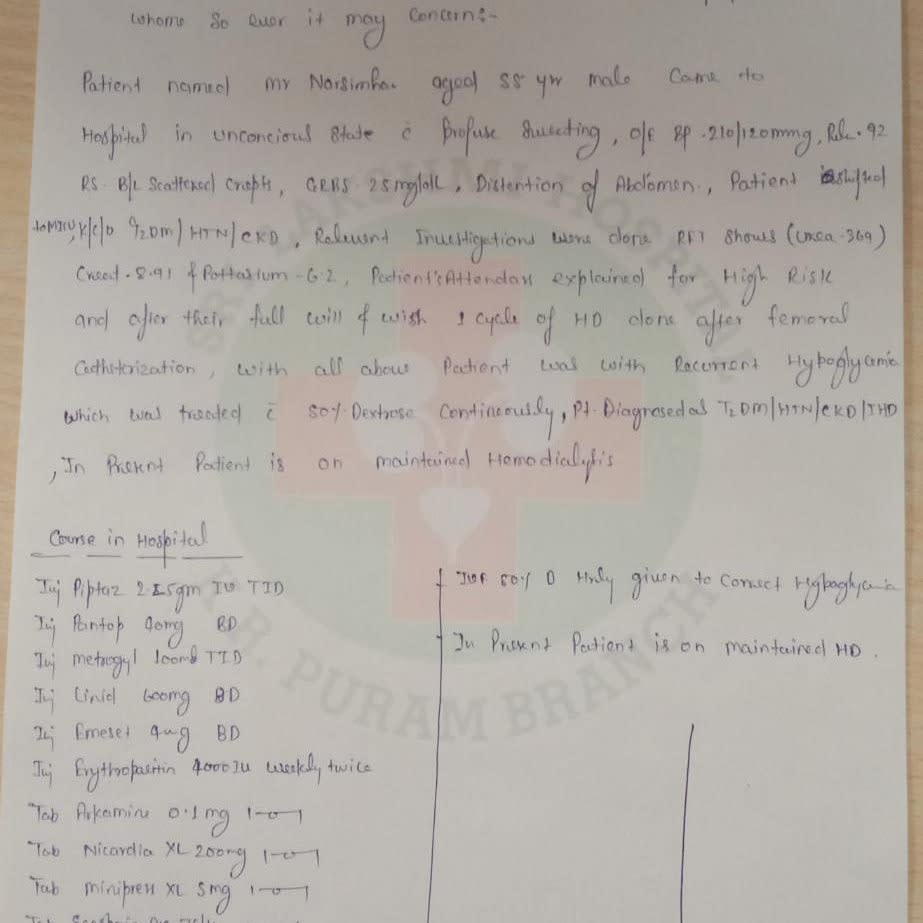 whome So ever it may Concern:-
Patient named mr Narsimha. aged 55 yr male Came to
Hospital in unconcious State c̄ Profuse Sweating, O/E BP .210/120mmg, 92
RS. B/L Scattered Crepts, GRBS. 25mg/dl, Distention of Abdomen., Patient is shifted
to MICU, K/C/O T2DM/HTN/CKD, Relevent Investigations were done RFT Shows (Urea.369)
Creat.8.91 & Pottasium-6.2, Patient's Attendar explained for High Risk
and after their full will & wish 1 cycle of HD done after femoral
Cathiterization, with all above Patient was with Recurrent Hypoglycemia
which was treated c̄ 50% Dextrose Continuously, Pt. Diagnosed as T2DM/HTN/CKD/IHD
, In Present Patient is on maintained Hemodialysis
Course in Hospital
Inj Piptaz 2.25gm IV TID
Inj Pantop 40mg BD
Inj metrogyl 100ml TID
Inj Linid 600mg BD
Inj Emeset 4mg BD
Inj Erythropoeitin 4000IU weekly twice
Tab Arkamine 0.1mg 1-0-1
Tab Nicardia XL 200mg 1-0-1
Tab minipress XL 5mg 1-0-1
IVF 50% D Hrly given to Correct Hypoglycemia
In Present Patient is on maintained HD.
SRI LAKSHMI HOSPITAL
K.R. PURAM BRANCH